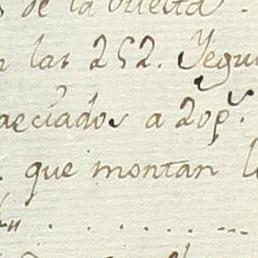 de la buelta.
las 252. Yegu
aeciados a 20 p.s
. que montan l